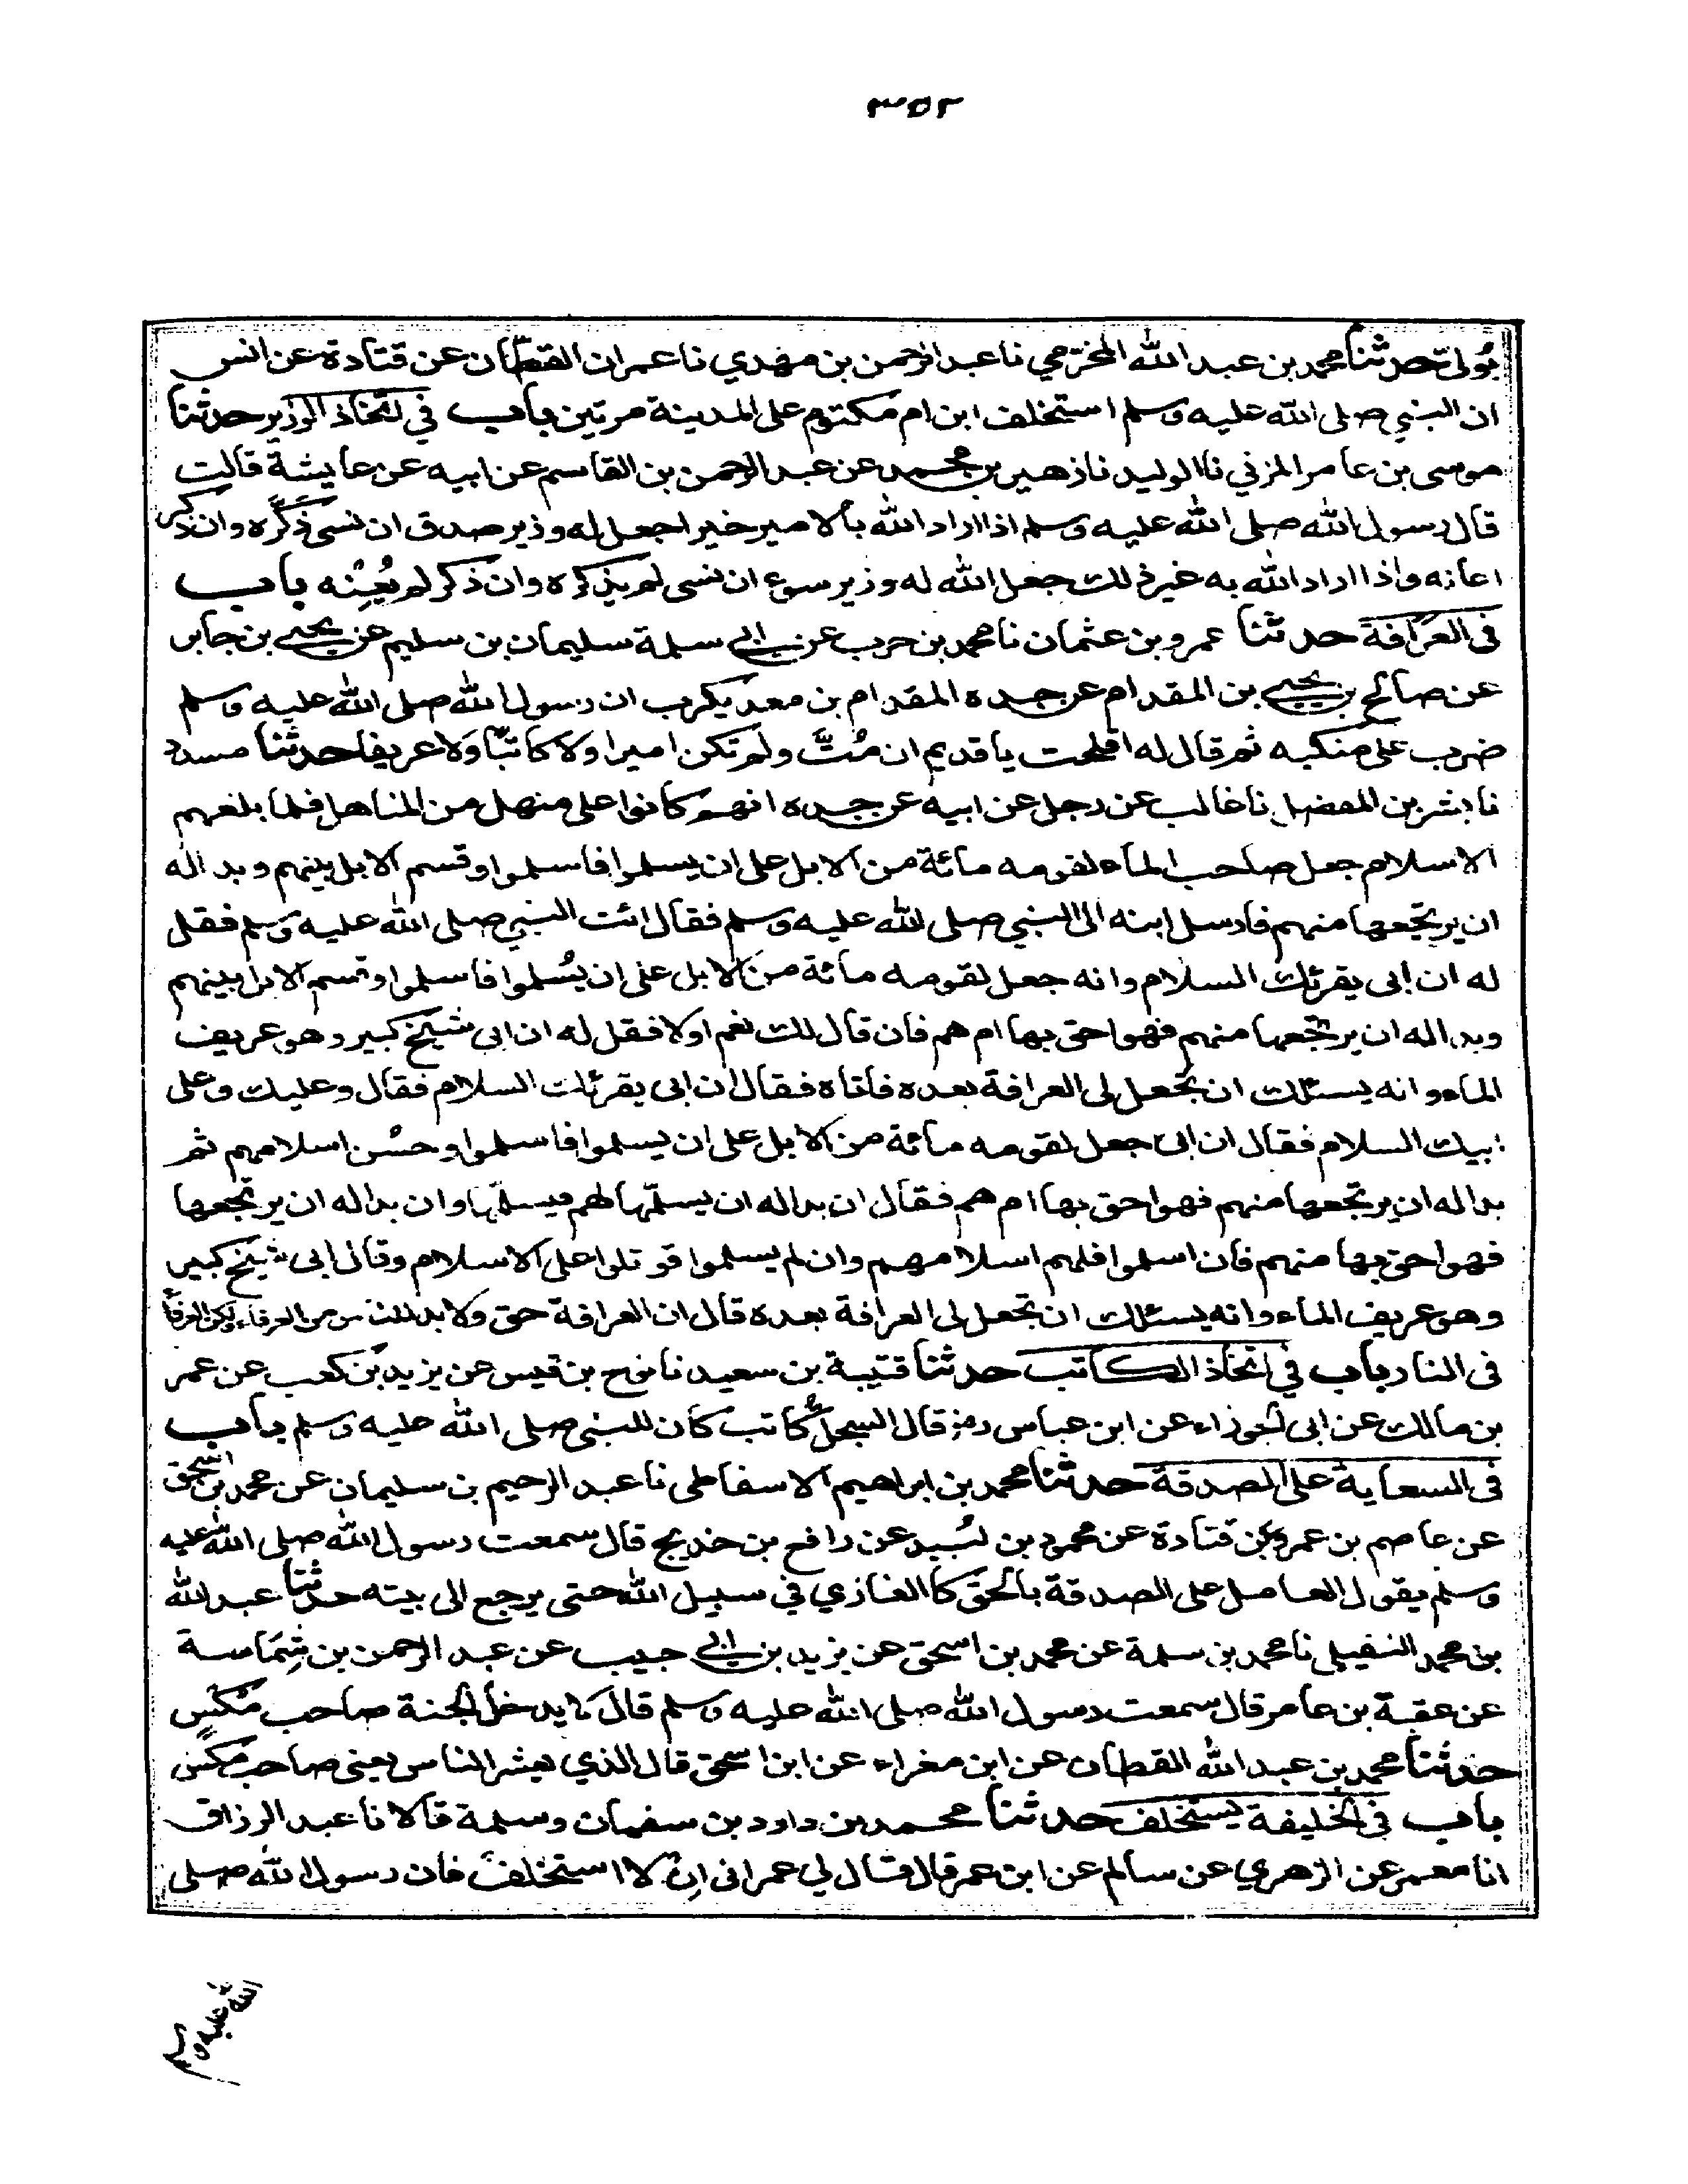 ٣٥٢
يُولى حدثنا محمد بن عبد الله المخرّمي نا عبد الرحمن بن مهدي نا عمران القطان عن قتادة عن انس
ان النبي صلى الله عليه وسلم استخلف ابن ام مكتوم على المدينة مرتين باب في اتخاذ الوزير حدثنا
موسى بن عامر المزني نا الوليد نا زهير بن محمد عن عبد الرحمن بن القاسم عن ابيه عن عايشة قالت
قال رسول الله صلى الله عليه وسلم اذا اراد الله بالامير خيرا جعل له وزير صدق ان نسى ذكّره وان ذكر
اعانه واذا اراد الله به غير ذلك جعل الله له وزير سوء ان نسى لم يذكره وان ذكر لم يُعِنْه باب
في العرافة حدثنا عمرو بن عثمان نا محمد بن حرب عن ابي سلمة سليمان بن سليم عن يحيى بن جابر
عن صالح بن يحيى بن المقدام عن جده المقدام بن معديكرب ان رسول الله صلى الله عليه وسلم
ضرب على منكبه ثم قال له افلحت يا قديم ان مُتَّ ولم تكن اميرا ولا كاتبا ولا عريفا حدثنا مسدد
نا بشر بن المفضل نا غالب عن رجل عن ابيه عن جده انهم كانوا على منهل من المناهل فلما بلغهم
الاسلام جعل صاحب الماء لقومه مائة من الابل على ان يسلموا فاسلموا وقسم الابل بينهم وبدا له
ان يرتجعها منهم فارسل ابنه الى النبي صلى الله عليه وسلم فقال ائت النبي صلى الله عليه وسلم فقل
له ان ابى يقرئك السلام وانه جعل لقومه مائة من الابل على ان يُسلموا فاسلموا وقسم الابل بينهم
وبدا له ان يرتجعها منهم فهو احق بها ام هم فان قال لك نعم او لا فقل له ان ابى شيخ كبير وهو عريف
الماء وانه يسئلك ان تجعل لى العرافة بعده فاتاه فقال ان ابى يقرئك السلام فقال وعليك وعلى
ابيك السلام فقال ان ابى جعل لقومه مائة من الابل على ان يسلموا فاسلموا وحسُن اسلامهم ثم
بدا له ان يرتجعها منهم فهو احق بها ام هم فقال ان بدا له ان يسلّمها لهم فيسلّمها وان بدا له ان يرتجعها
فهو احق بها منهم فان اسلموا فلهم اسلامهم وان لم يسلموا قوتلوا على الاسلام وقال ابى شيخ كبير
وهو عريف الماء وانه يسئلك ان تجعل لى العرافة بعده قال ان العرافة حق ولا بد للناس من العرفاء ولكن العرفاء
فى النار باب في اتخاذ الكاتب حدثنا قتيبة بن سعيد نا نوح بن قيس عن يزيد بن كعب عن عمرو
بن مالك عن ابى الجوزاء عن ابن عباس رض قال السجلُّ كاتب كان للنبى صلى الله عليه وسلم باب
فى السعاية على الصدقة حدثنا محمد بن ابراهيم الاسفاطى نا عبد الرحيم بن سليمان عن محمد بن اسحق
عن عاصم بن عمرو بن قتادة عن محمود بن لبُيد عن رافع بن خديج قال سمعت رسول الله صلى الله عليه
وسلم يقول العامل على الصدقة بالحق كالغازي في سبيل الله حتى يرجع الى بيته حدثنا عبد الله
بن محمد النفيلي نا محمد بن سلمة عن محمد بن اسحق عن يزيد بن ابي حبيب عن عبد الرحمن بن شِمَاسة
عن عقبة بن عامر قال سمعت رسول الله صلى الله عليه وسلم قال لا يدخل الجنة صاحب مَكْسٍ
حدثنا محمد بن عبد الله القطان عن ابن مغراء عن ابن اسحق قال الذي يعشر الناس يعنى صاحب مكس
باب فى الخليفة يستخلف حدثنا محمد بن داود بن سفيان وسلمة قالا نا عبد الرزاق
انا معمر عن الزهري عن سالم عن ابن عمر قال قال لي عمر انى اِنْ لا استخلف فان رسول الله صلى
الله عليه وسلم